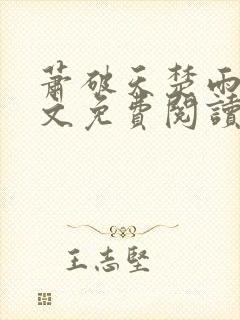 蕭破天楚雨
文免費閱讀
王志堅